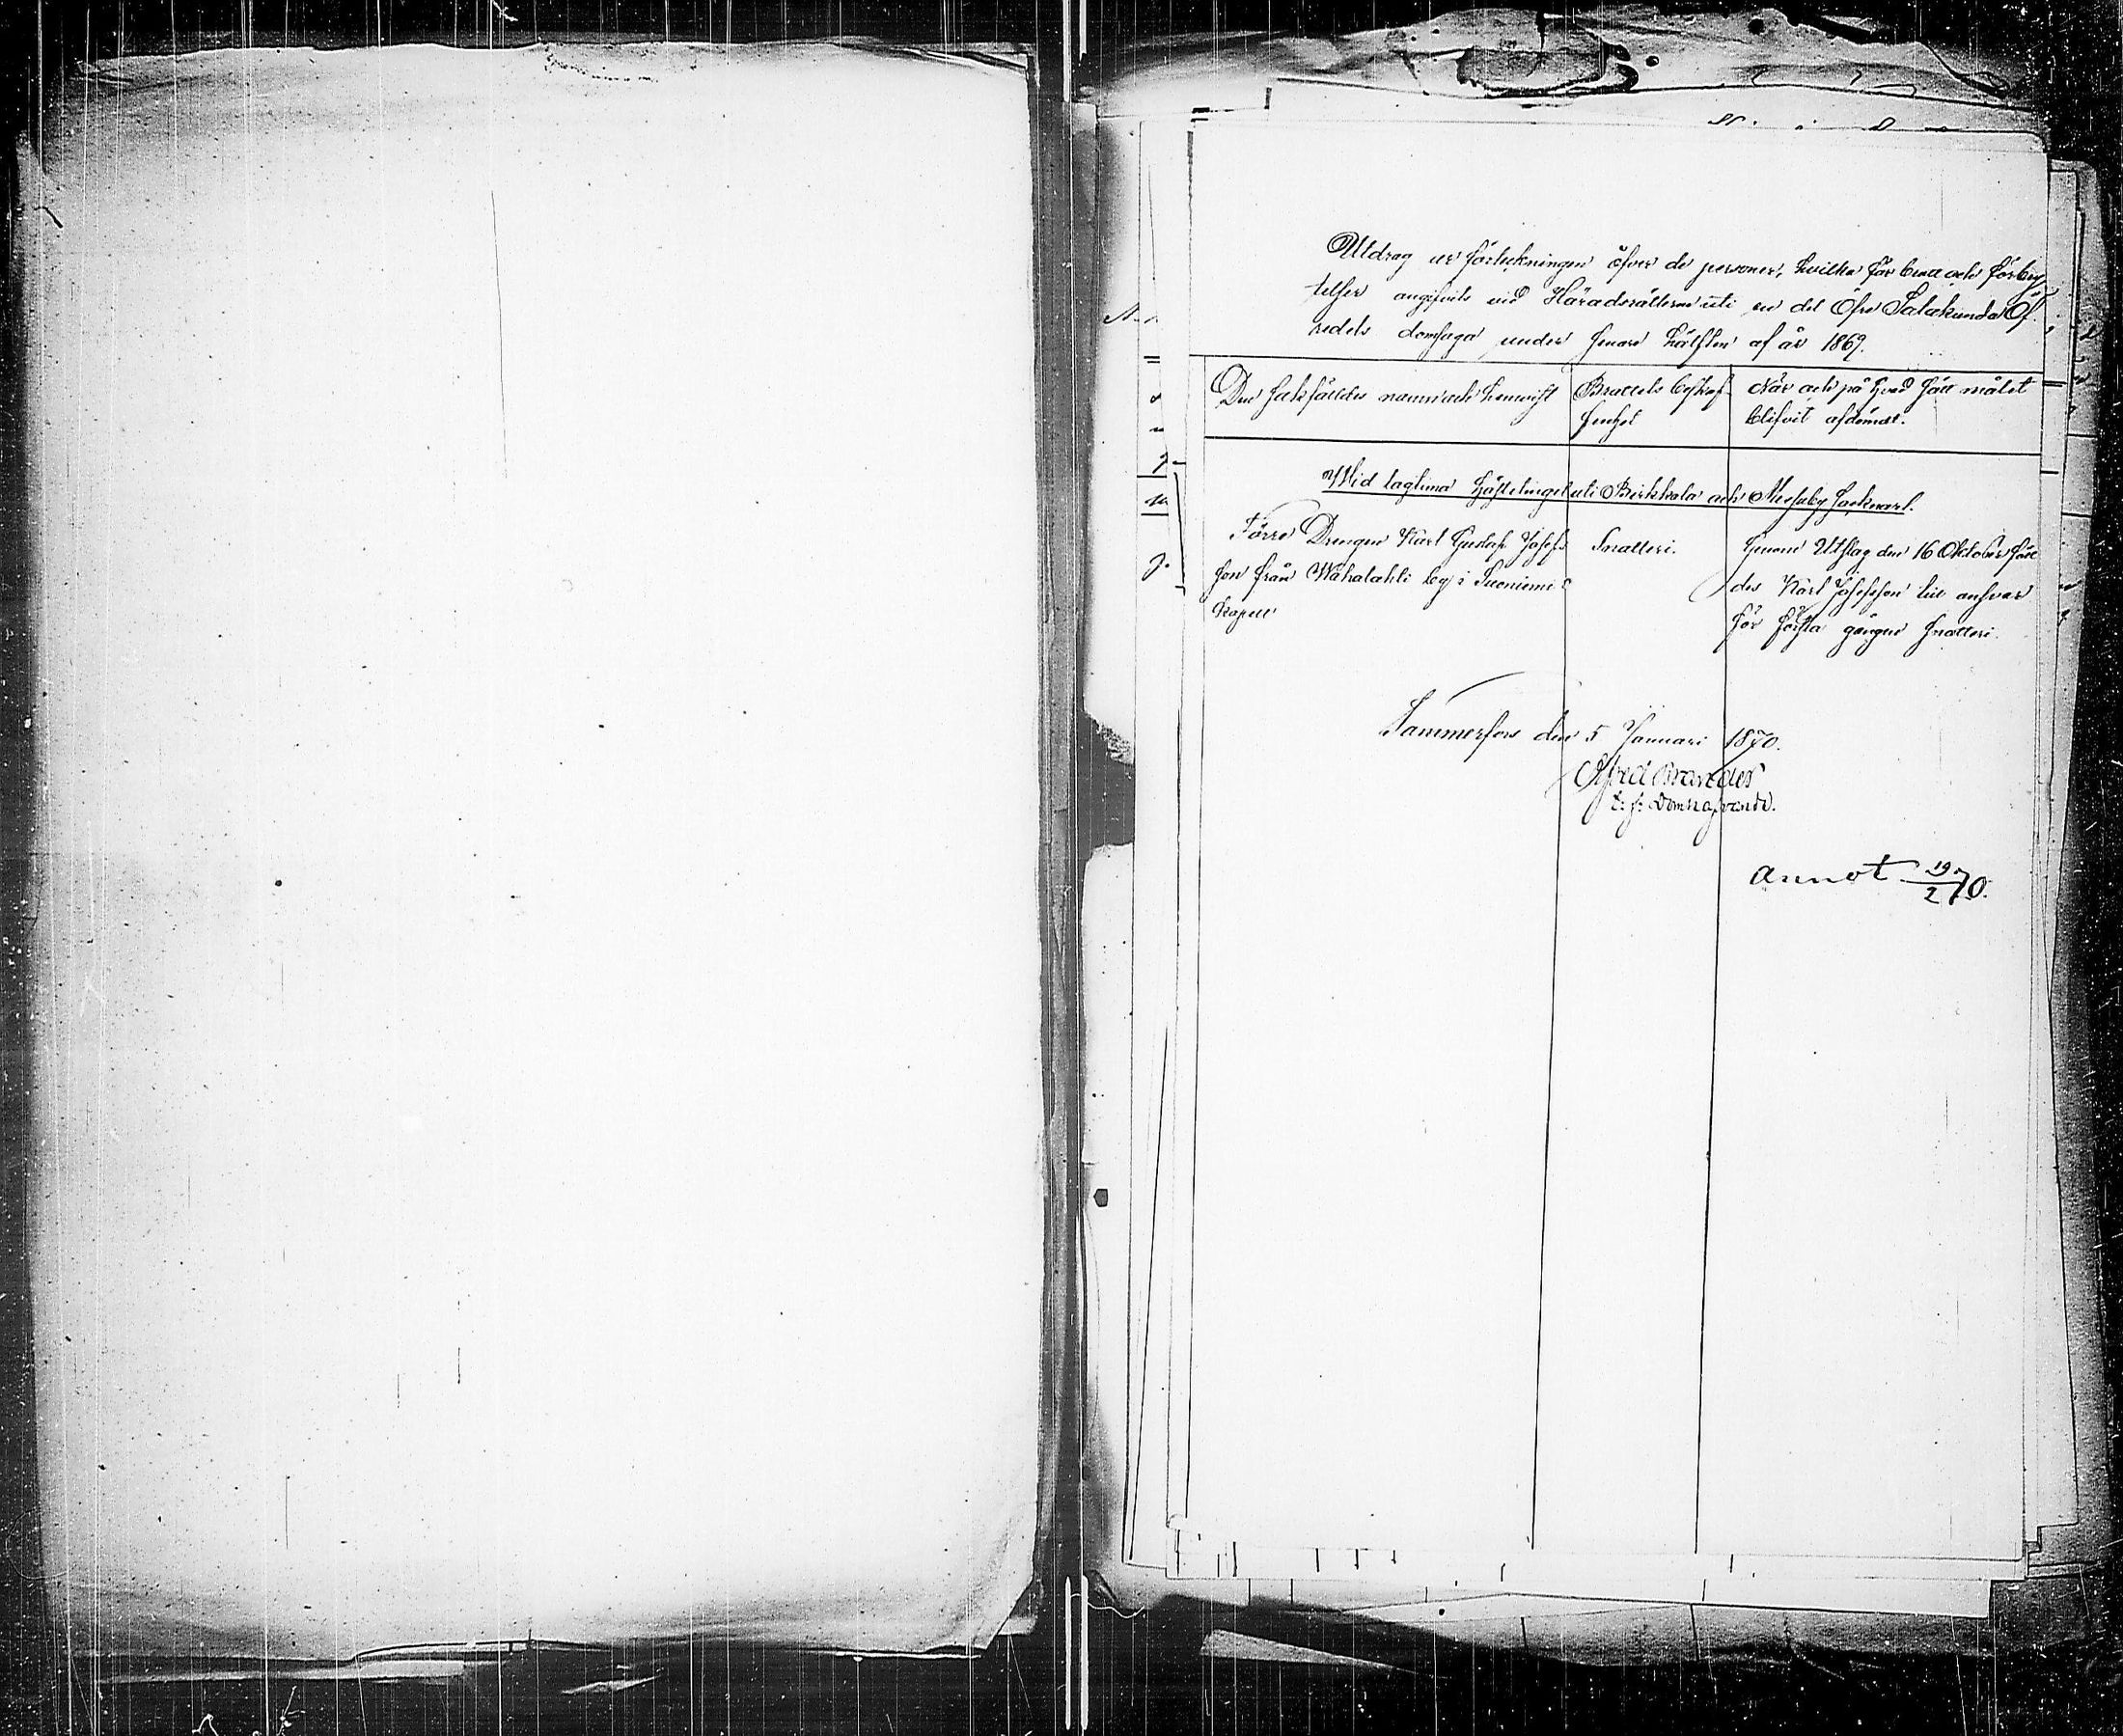 Utdrag ur förteckningen öfver de personer, hvilka för brott och förbry
telser angifvits vid Häradsrätterne uti en del Öfre Satakunda Öf.
redels domsaga under senare hälften af år 1869.
Den sakfälldes namn och hemvist
Brottets beskaf-
fenhet
När och på hvad sätt målet
blifvit afdömdt.
Wid lagtima Hösttinget uti Birkkala och Messuby socknar.
Förre Drengen Karl Gustaf Josefs
son från Wähälahti by i Suoniemi
kapell
Snatteri.
Genom Utslag den 16 Oktober fäll
des Karl Josefsson till ansvar
för första gången snatteri.
Tammerfors den 5 Januari 1870.
Alfred Brander
t. f. Domhafvande.
Annot 19/2 70.